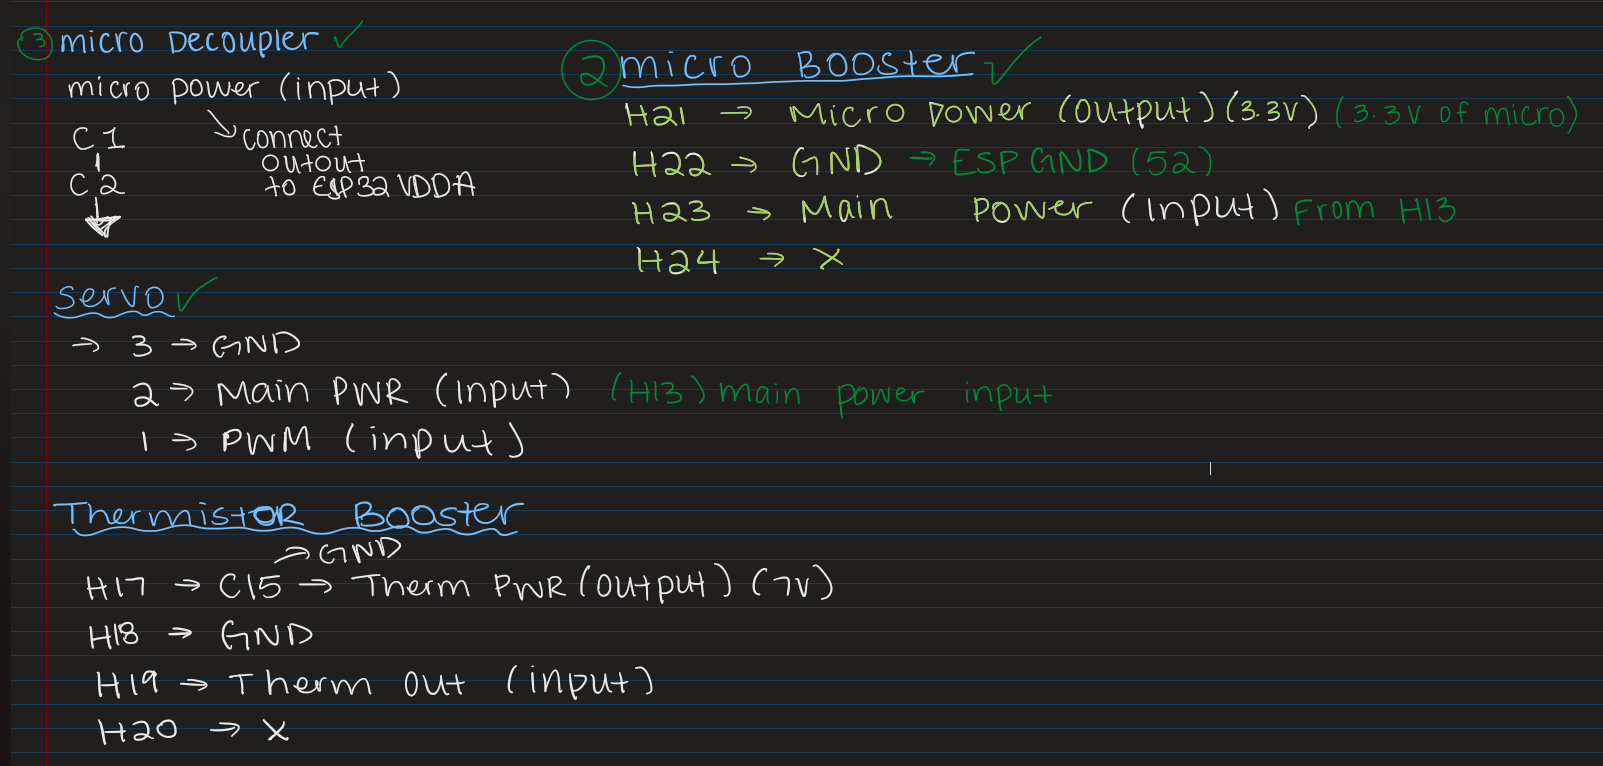 3 micro Decoupler ✓
micro power (input)
↘ connect
outout
to ESP32 VDDA
C1
C2
2 micro Booster ✓
H21 → Micro Power (Output) (3.3V) (3.3V of micro)
H22 → GND → ESP GND (52)
H23 → Main Power (Input) From H13
H24 → X
Servo ✓
→ 3 → GND
2 → Main PWR (Input) (H13) main power input
1 → PWM (input)
Thermistor Booster
→ GND
H17 → C15 → Therm PWR (Output) (7V)
H18 → GND
H19 → Therm Out (input)
H20 → X